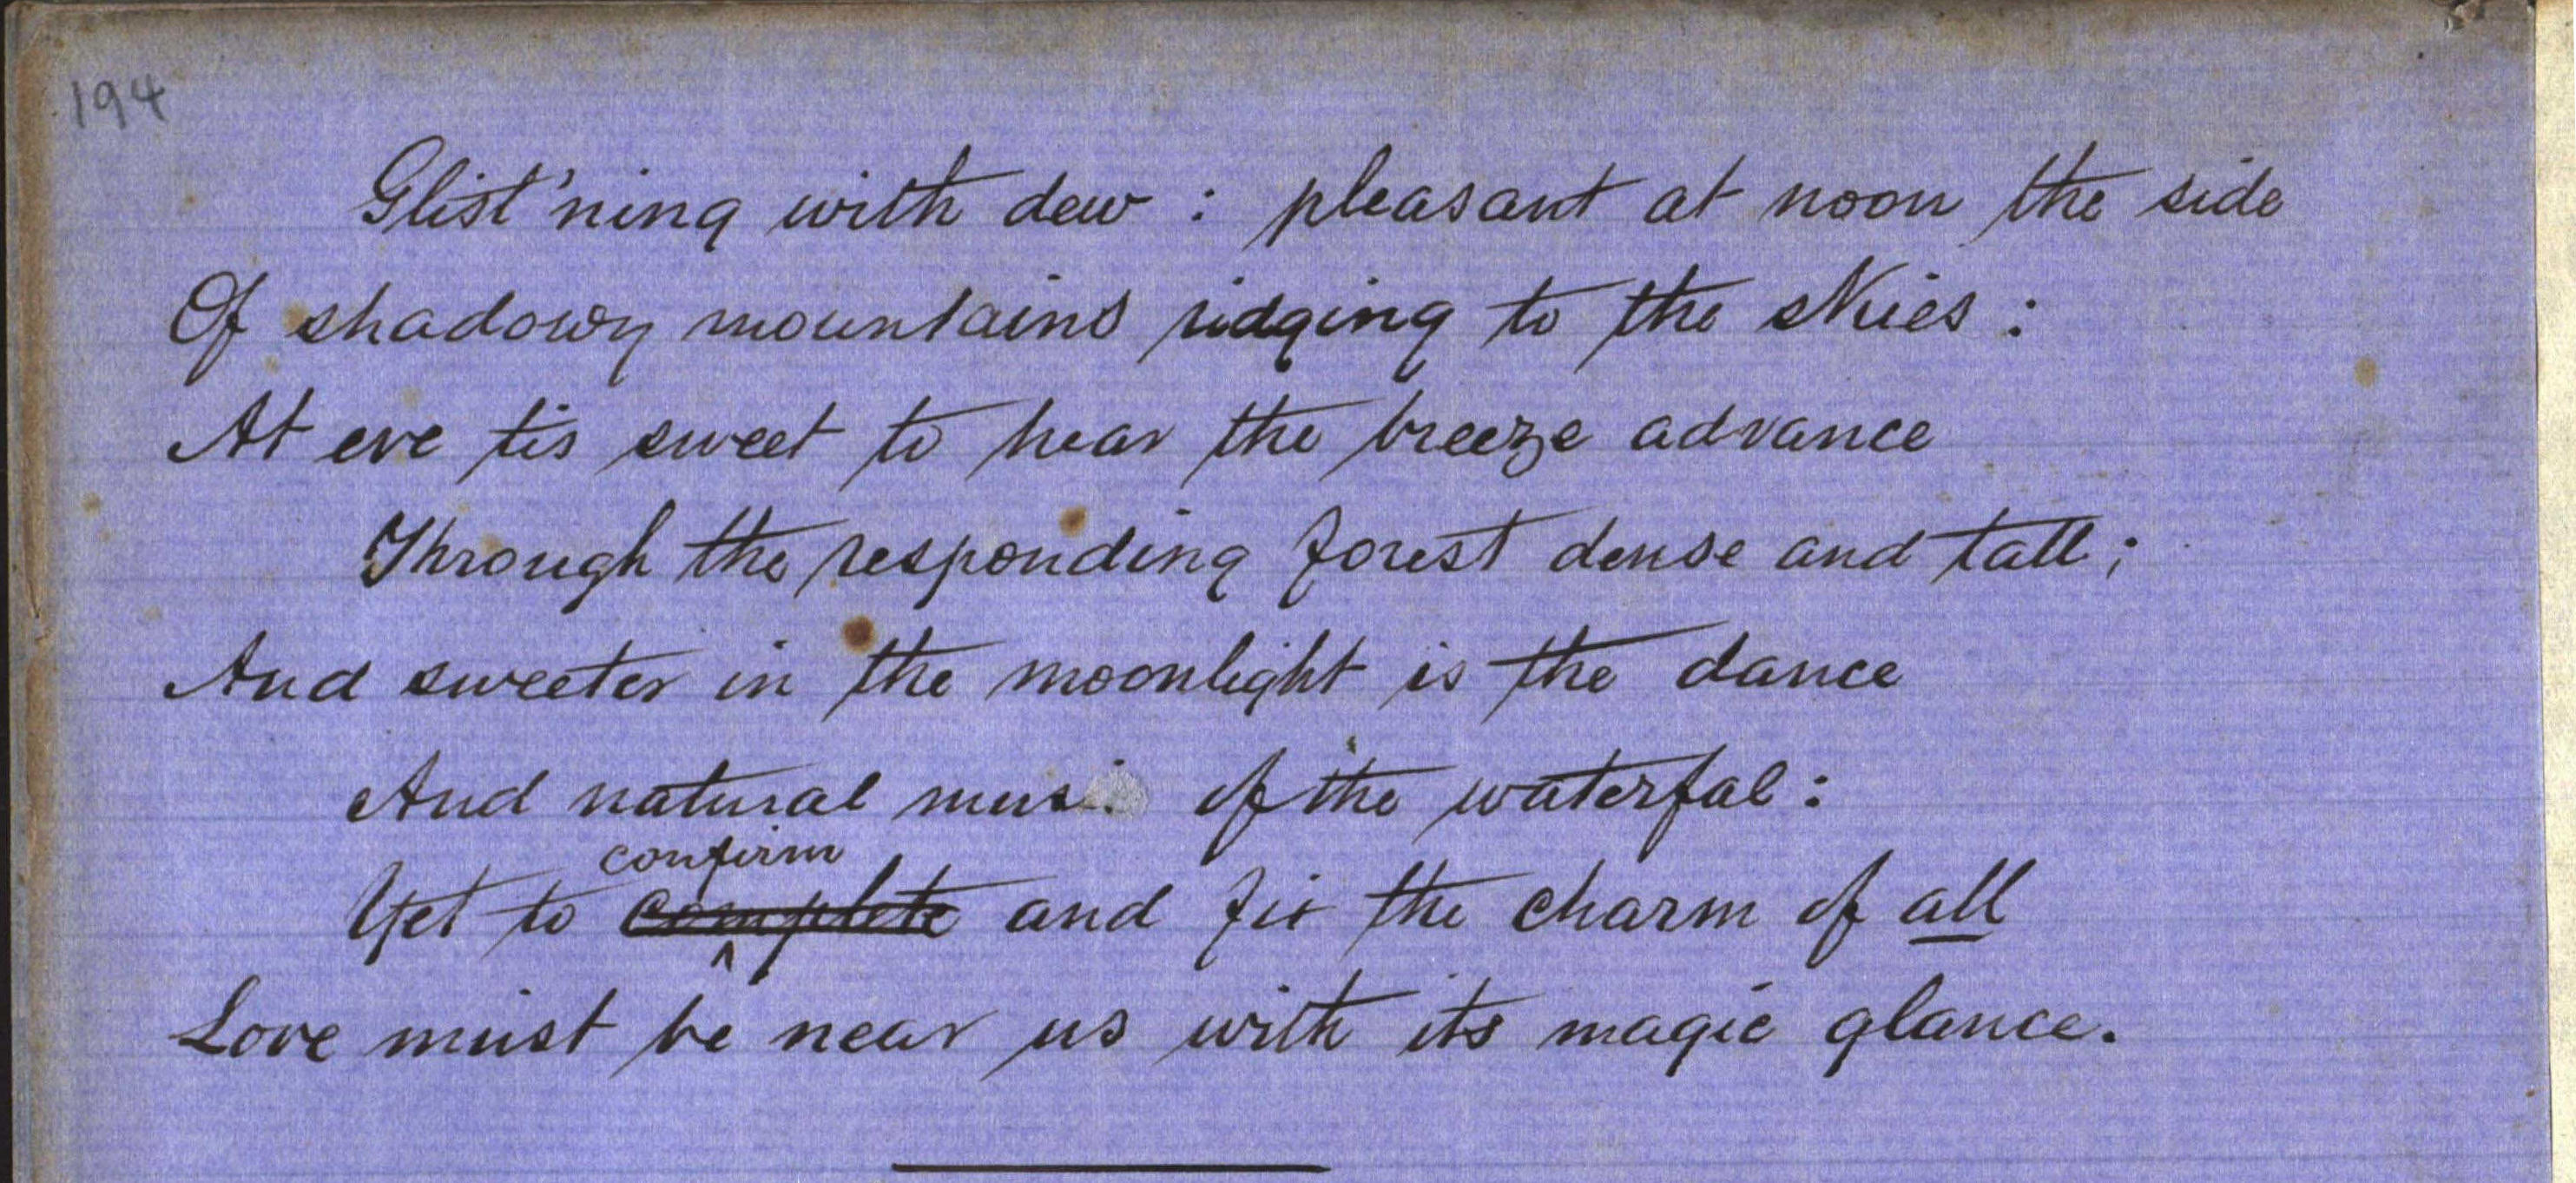 194
Glist'ning with dew : pleasant at noon the side
Of shadowy mountains ridging to the skies :
At eve tis sweet to hear the breeze advance
Through the responding forest dense and tall ;
And sweeter in the moonlight is the dance
And natural musi of the waterfal :
confirm
Yet to complete and fix the charm of all
Love must be near us with its magic glance.